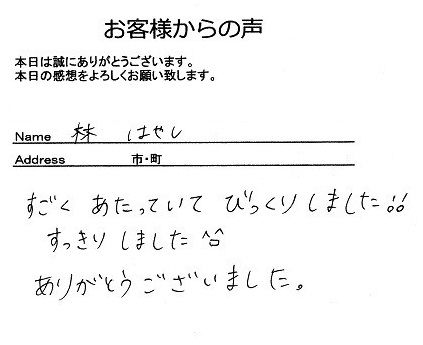 お客様からの声
本日は誠にありがとうございます。
本日の感想をよろしくお願い致します。
Name 林 はやし
Address 市・町
すごく あたっていて びっくりしました!!
すっきりしました^^
ありがとうございました。